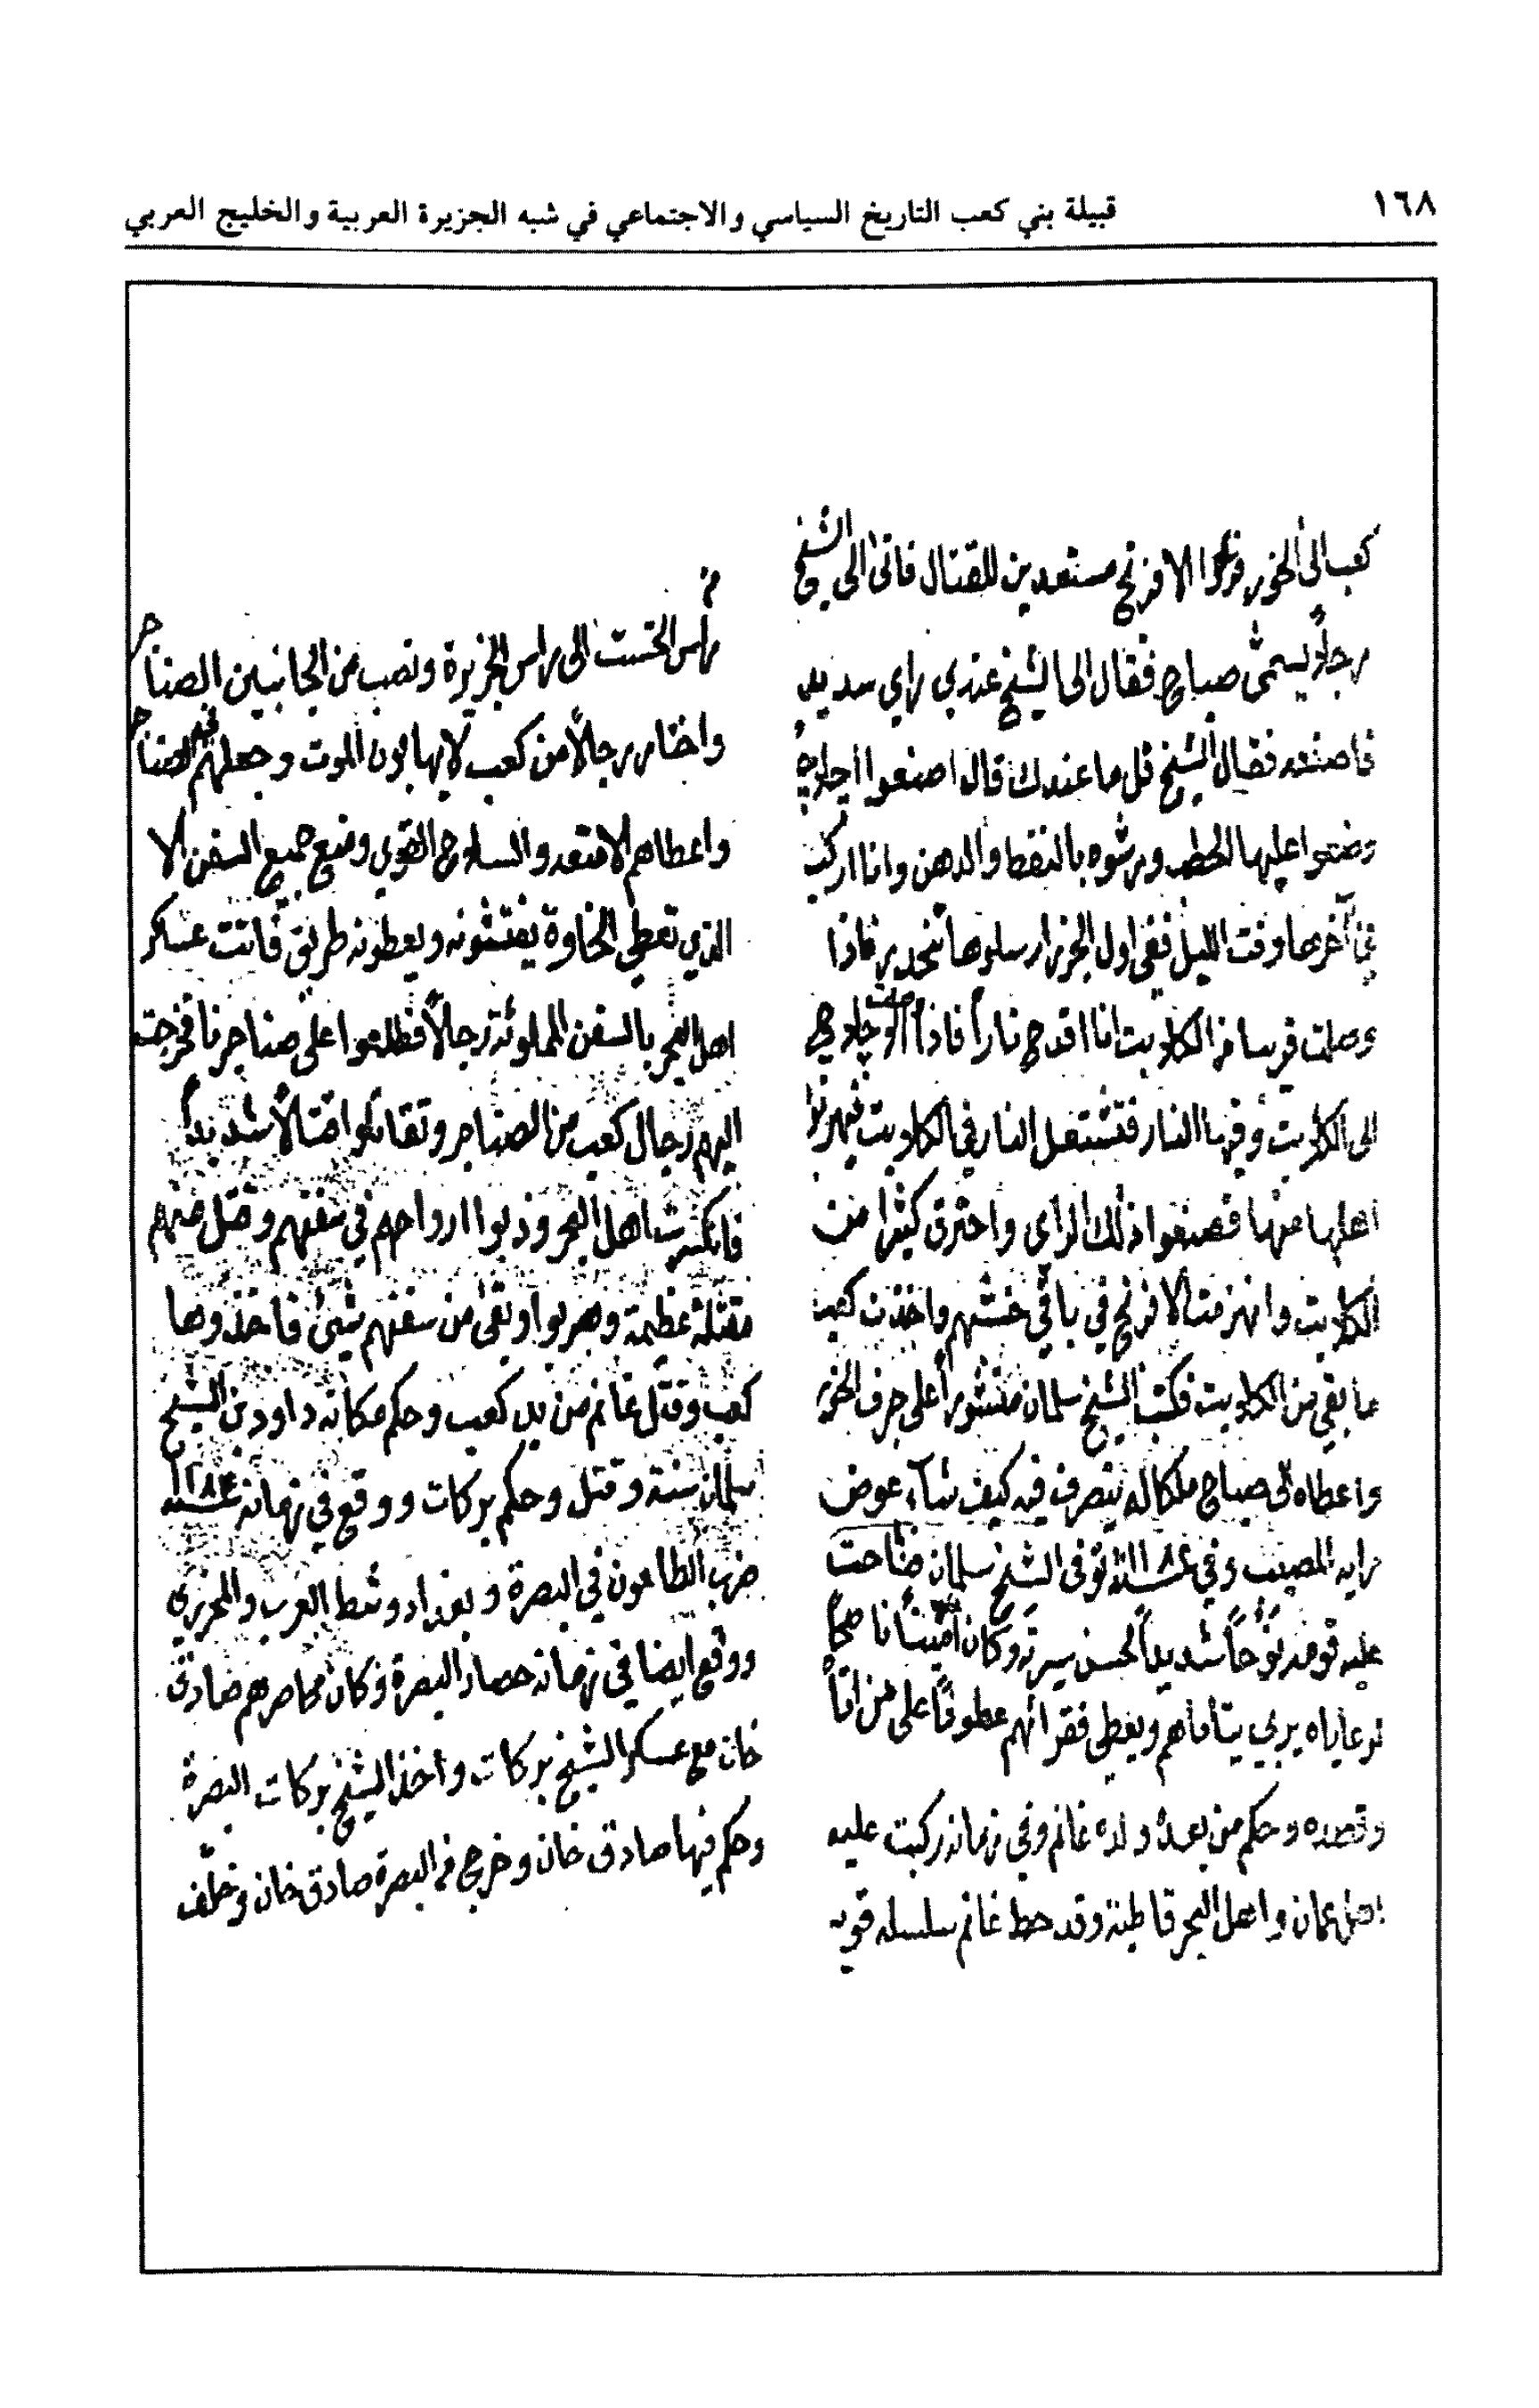 ١٦٨
قبيلة بني كعب التاريخ السياسي والاجتماعي في شبه الجزيرة العربية والخليج العربي
كعب الى الخور فراوا الافرنج مستعدين للقتال فاتى الى الشيخ
رجلاً يسمى صباح فقال الى الشيخ عندي راي سديد
فاصنعه فقال الشيخ قل ما عندك قال اصنعوا
وضعوا عليها الحطب ورشوه بالنفط والدهن وانا اركب
في آخرها وقت الليل ففي اول الجزر ارسلوها تنحدر فاذا
وصلت قريبا من الكلابيت انا اقدح ناراً فاذا وصلت
الى الكلابيت وفيها النار فتشتعل النار في الكلابيت
اهلها منها فصنعوا ذلك الراى واحترق كثيرا من
الكلابيت وانهزمت الافرنج في باقي خشبهم واخذت كعب
ما بقي من الكلابيت فكتب الشيخ سلمان منشورا على جرف الخور
واعطاه الى صباح ملكا له يتصرف فيه كيف شآء عوض
رايه المصيب وفي سنة توفى الشيخ سلمان وناحت
عليه قومه نوحاً شديداً لحسن سيرته وكان ناصحاً
لرعاياه يربي يتاماهم ويعطى فقرائهم عطوفاً على من اتاه
وقصده وحكم من بعده ولده غانم وفي زمانه ركبت عليه
اهل عمان واهل البحر قاطبة وقد حط غانم سلسله قويه
من
راس الى راس الجزيرة ونصب من الجانبين الصناجر
واختار رجالاً من كعب لا يهابون الموت وجعلهم في الصناجر
واعطاهم الامتعه والسلاح القوي ومنع جميع السفن الا
الذي تعطي الخاوة يفتشونه ويعطونه طريق فاتت عساكر
اهل البحر بالسفن المملوئة رجالاً فطلعوا على صناجرنا فخرجت
اليهم رجال كعب من الصناجر وتقاتلوا قتالاً شديداً
فانكسرت اهل البحر وذبوا ارواحهم في سفنهم وقتل منهم
مقتلة عظيمة وهربوا وبقى من سفنهم شيئ فاخذوها
كعب وقتل غانم من يد كعب وحكم مكانه داود بن الشيخ
سلمان سنة وقتل وحكم بركات ووقع في زمانه سنه
ضرب الطاعون في البصرة وبغداد وشط العرب والمحرزي
ووقع ايضا في زمانه حصار البصرة وكان محاصرهم صادق
خان مع عسكر الشيخ بركات واخذ الشيخ بركات البصرة
وحكم فيها صادق خان وخرج من البصرة صادق خان وخلف